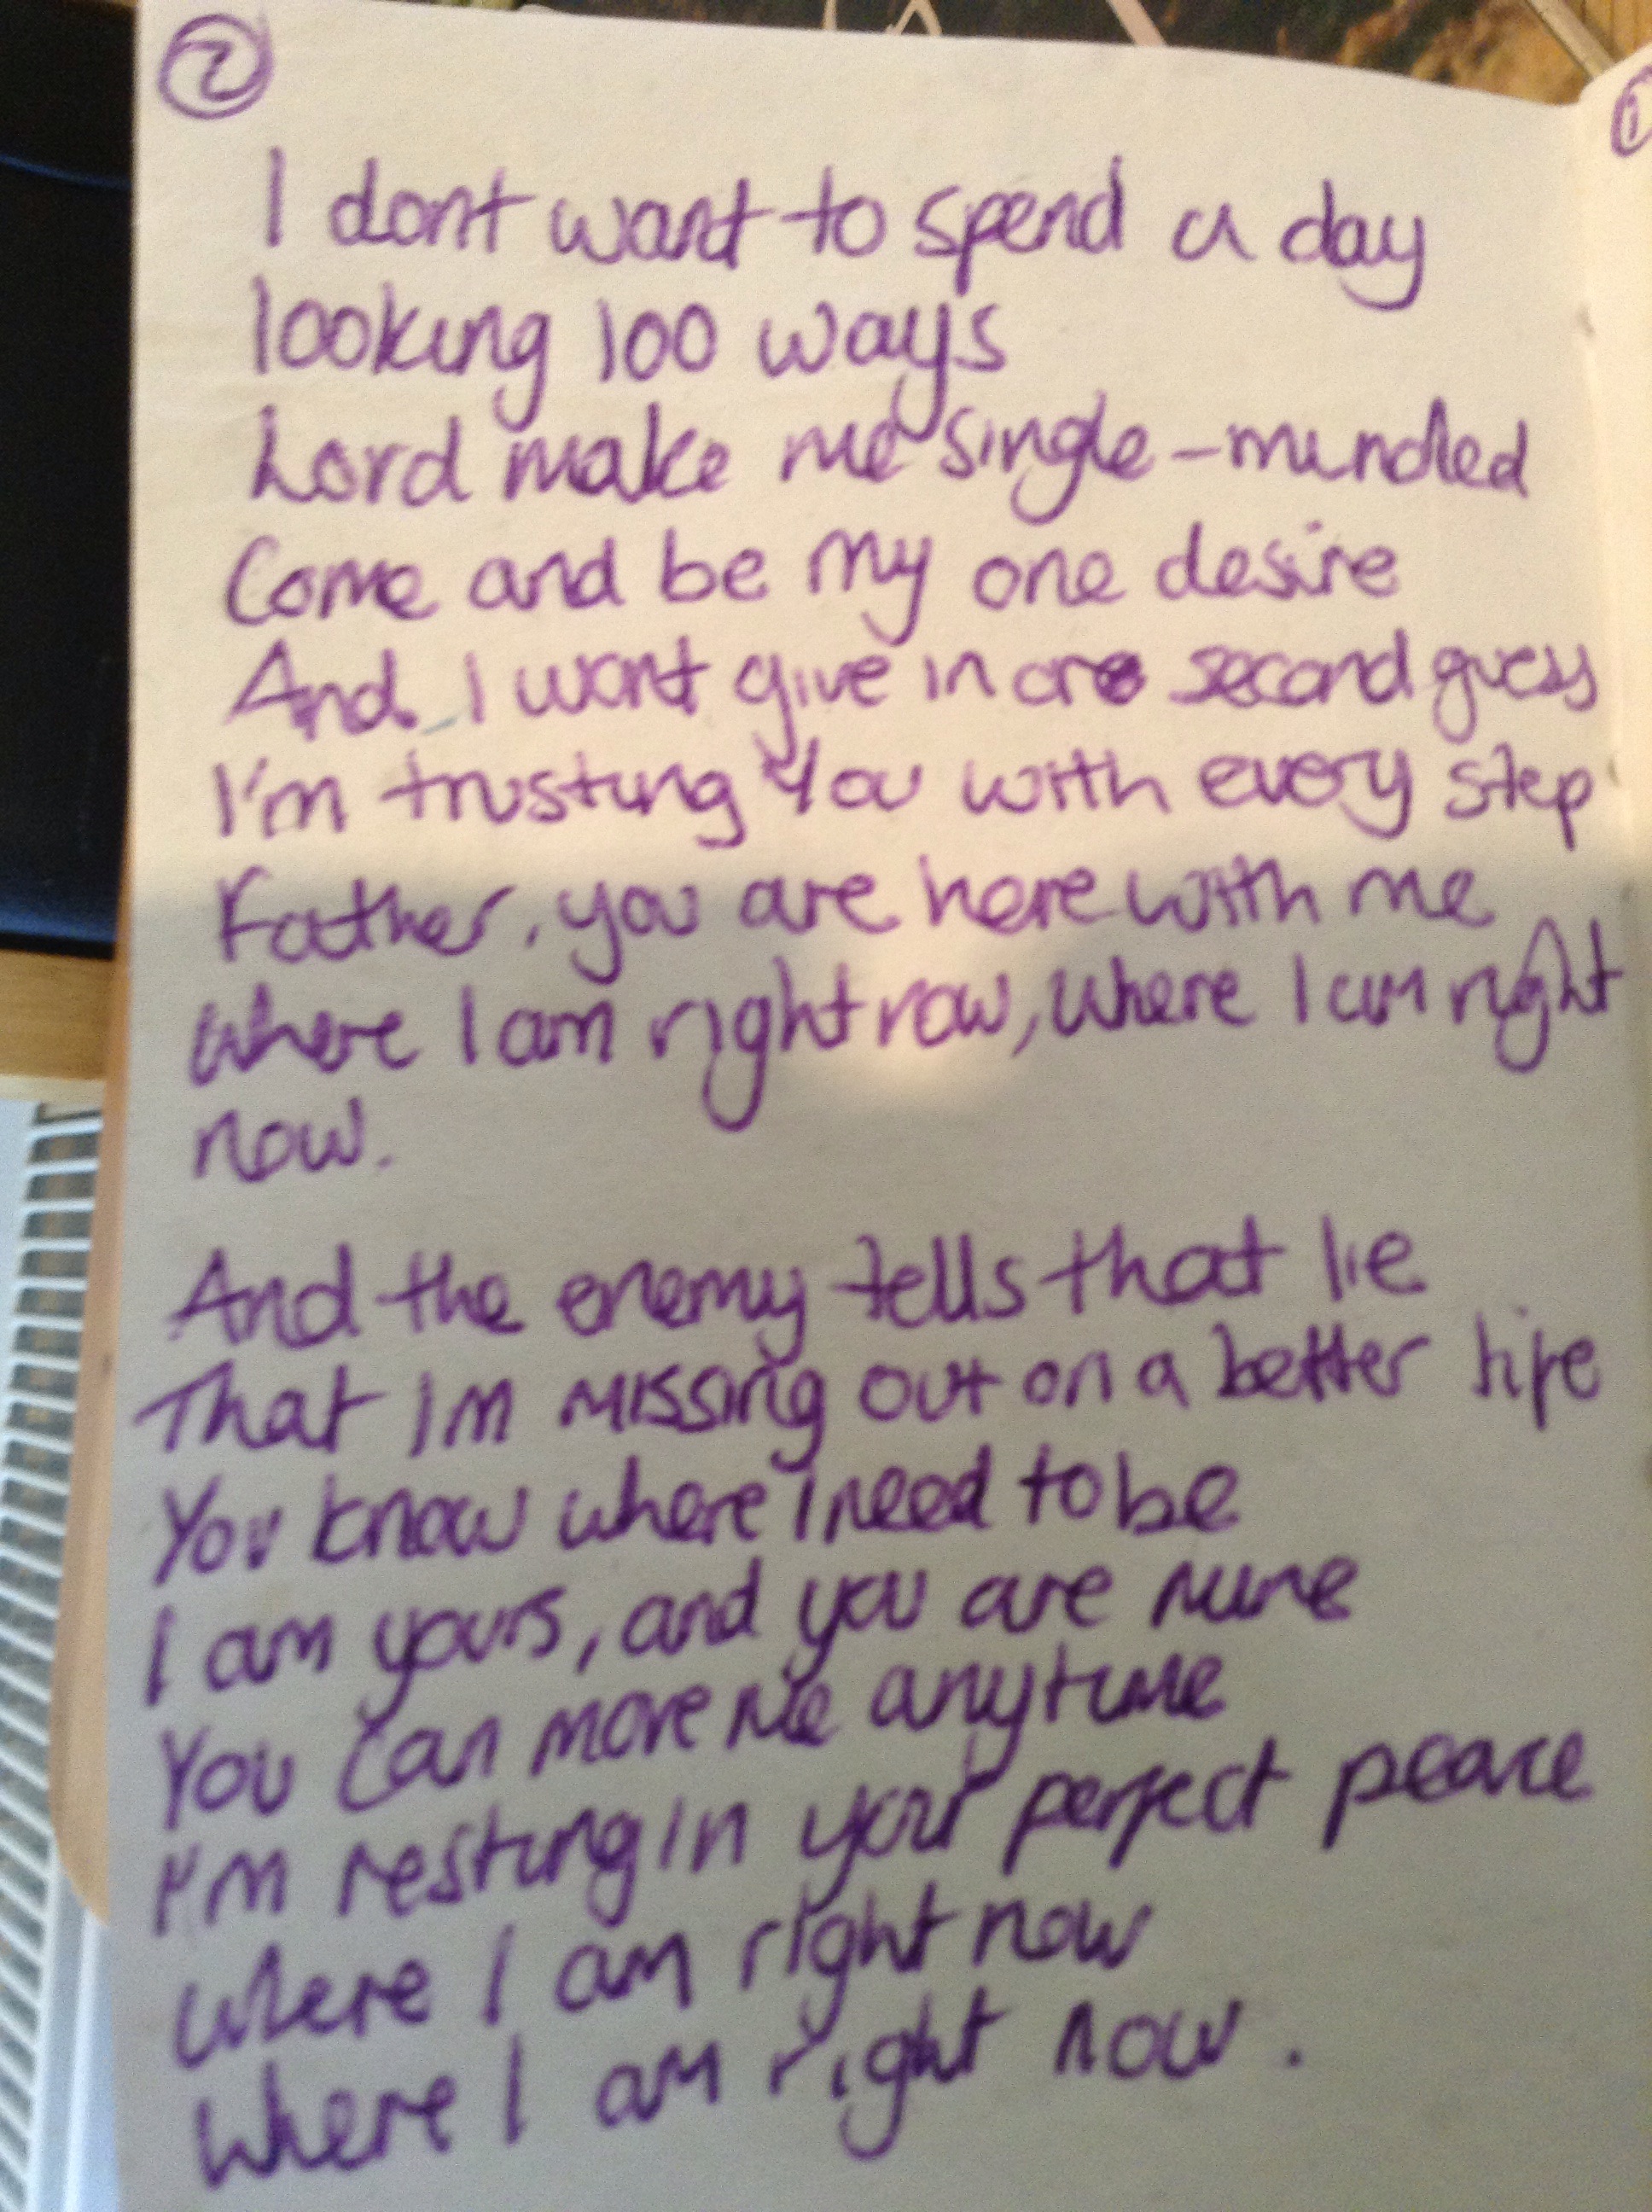 2
I dont want to spend a day
looking 100 ways
Lord make me single-minded
Come and be my one desire
And I wont give in or second guess
I'm trusting You with every step
Father, you are here with me
where I am right now, where I am right
now.
And the enemy tells that lie
That Im missing out on a better life
You know where I need to be
I am yours, and you are mine
You can move me anytime
I'm resting in your perfect peace
where I am right now
Where I am right now.